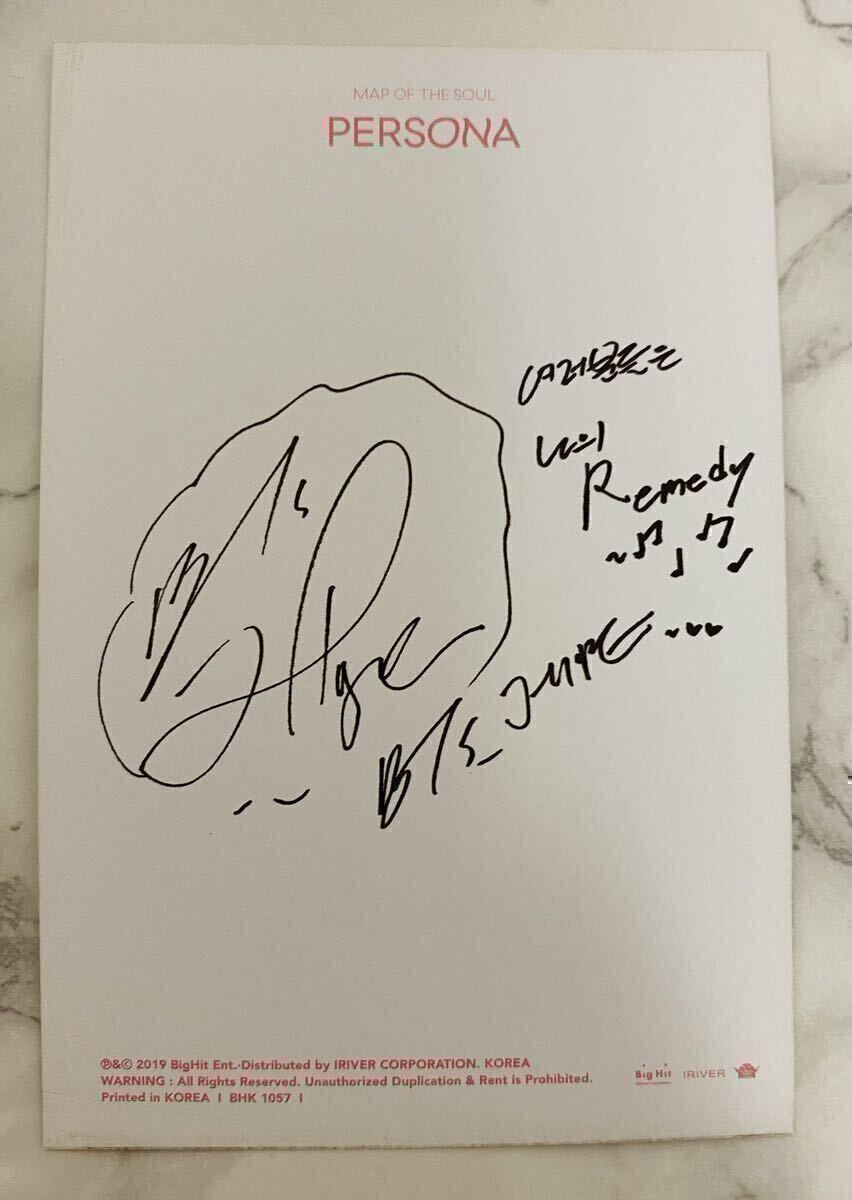 MAP OF THE SOUL
PERSONA
여러분들은
나의
Remedy
BTS
BTS_J-HOPE
℗&© 2019 BigHit Ent.·Distributed by IRIVER CORPORATION. KOREA
WARNING : All Rights Reserved. Unauthorized Duplication & Rent is Prohibited.
Printed in KOREA I BHK 1057 I
Big Hit
IRIVER